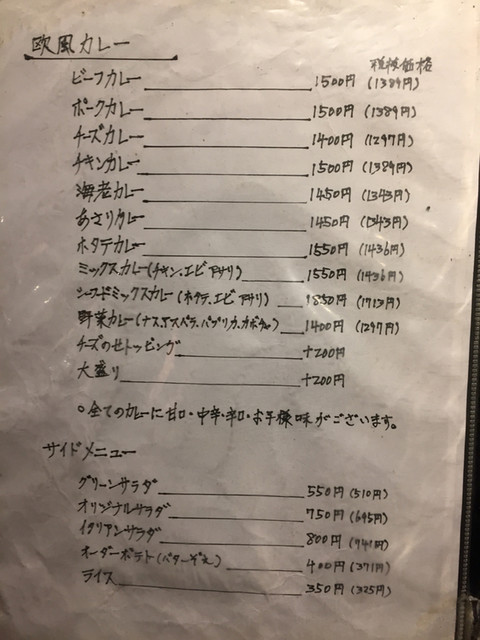 欧風カレー
税抜価格
ビーフカレー 1500円 (1389円)
ポークカレー 1500円 (1389円)
チーズカレー 1400円 (1297円)
チキンカレー 1500円 (1389円)
海老カレー 1450円 (1343円)
あさりカレー 1450円 (1343円)
ホタテカレー 1550円 (1436円)
ミックスカレー(チキン、エビ アサリ) 1550円 (1436円)
シーフードミックスカレー(ホタテ、エビ アサリ) 1850円 (1713円)
野菜カレー(ナス、アスパラ、パプリカ、カボチャ) 1400円 (1297円)
チーズのせトッピング +200円
大盛り +200円
○全てのカレーに甘口・中辛・辛口・お子様味がございます。
サイドメニュー
グリーンサラダ 550円 (510円)
オリジナルサラダ 750円 (695円)
イタリアンサラダ 800円 (741円)
オーダーポテト(バターぞえ) 400円 (371円)
ライス 350円 (325円)